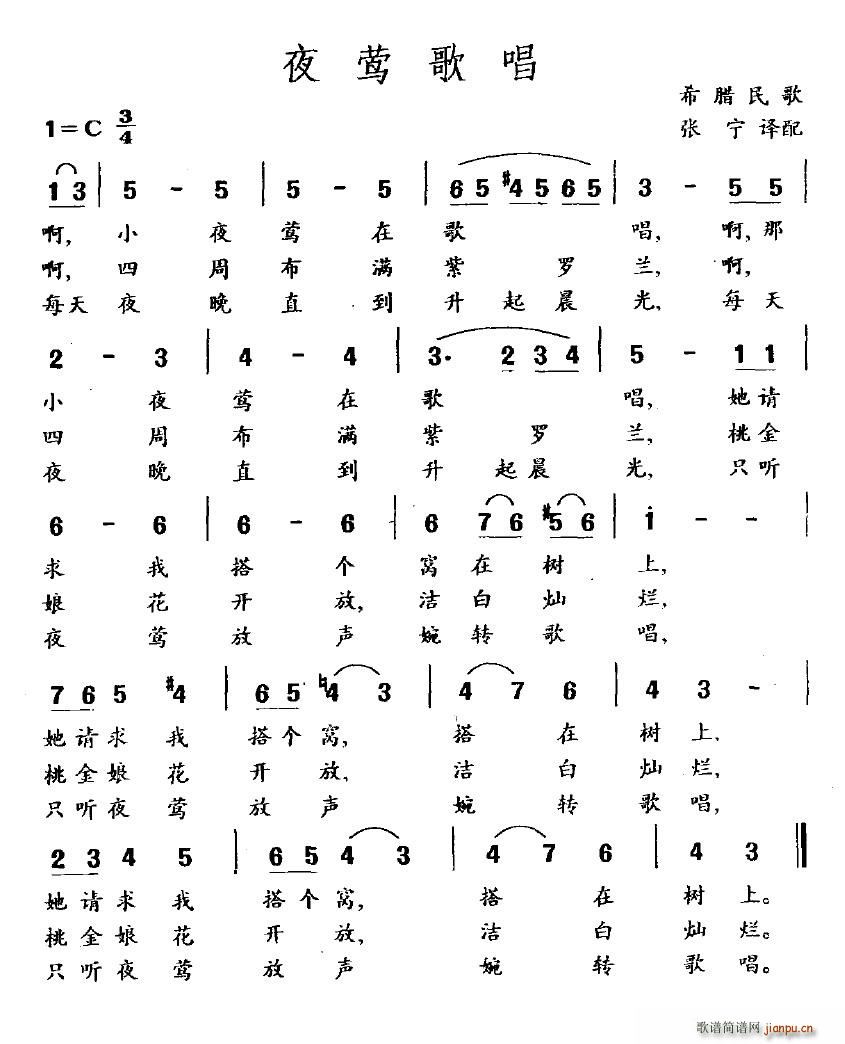 夜莺歌唱
希腊民歌
1=C 3/4
张宁译配
1 3 | 5 - 5 | 5 - 5 | 6 5 #4 5 6 5 | 3 - 5 5 |
啊, 小夜莺在歌唱, 啊, 那
啊, 四周布满紫罗兰, 啊,
每天夜晚直到升起晨光, 每天
2 - 3 | 4 - 4 | 3. 2 3 4 | 5 - 1 1 |
小夜莺在歌唱, 她请
四周布满紫罗兰, 桃金
夜晚直到升起晨光, 只听
6 - 6 | 6 - 6 | 6 7 6 #5 6 | i - - |
求我搭个窝在树上,
娘花开放, 洁白灿烂,
夜莺放声婉转歌唱,
7 6 5 #4 | 6 5 ♮4 3 | 4 7 6 | 4 3 - |
她请求我搭个窝, 搭在树上,
桃金娘花开放, 洁白灿烂,
只听夜莺放声婉转歌唱,
2 3 4 5 | 6 5 4 3 | 4 7 6 | 4 3 ‖
她请求我搭个窝, 搭在树上。
桃金娘花开放, 洁白灿烂。
只听夜莺放声婉转歌唱。
歌谱简谱网 jianpu.cn